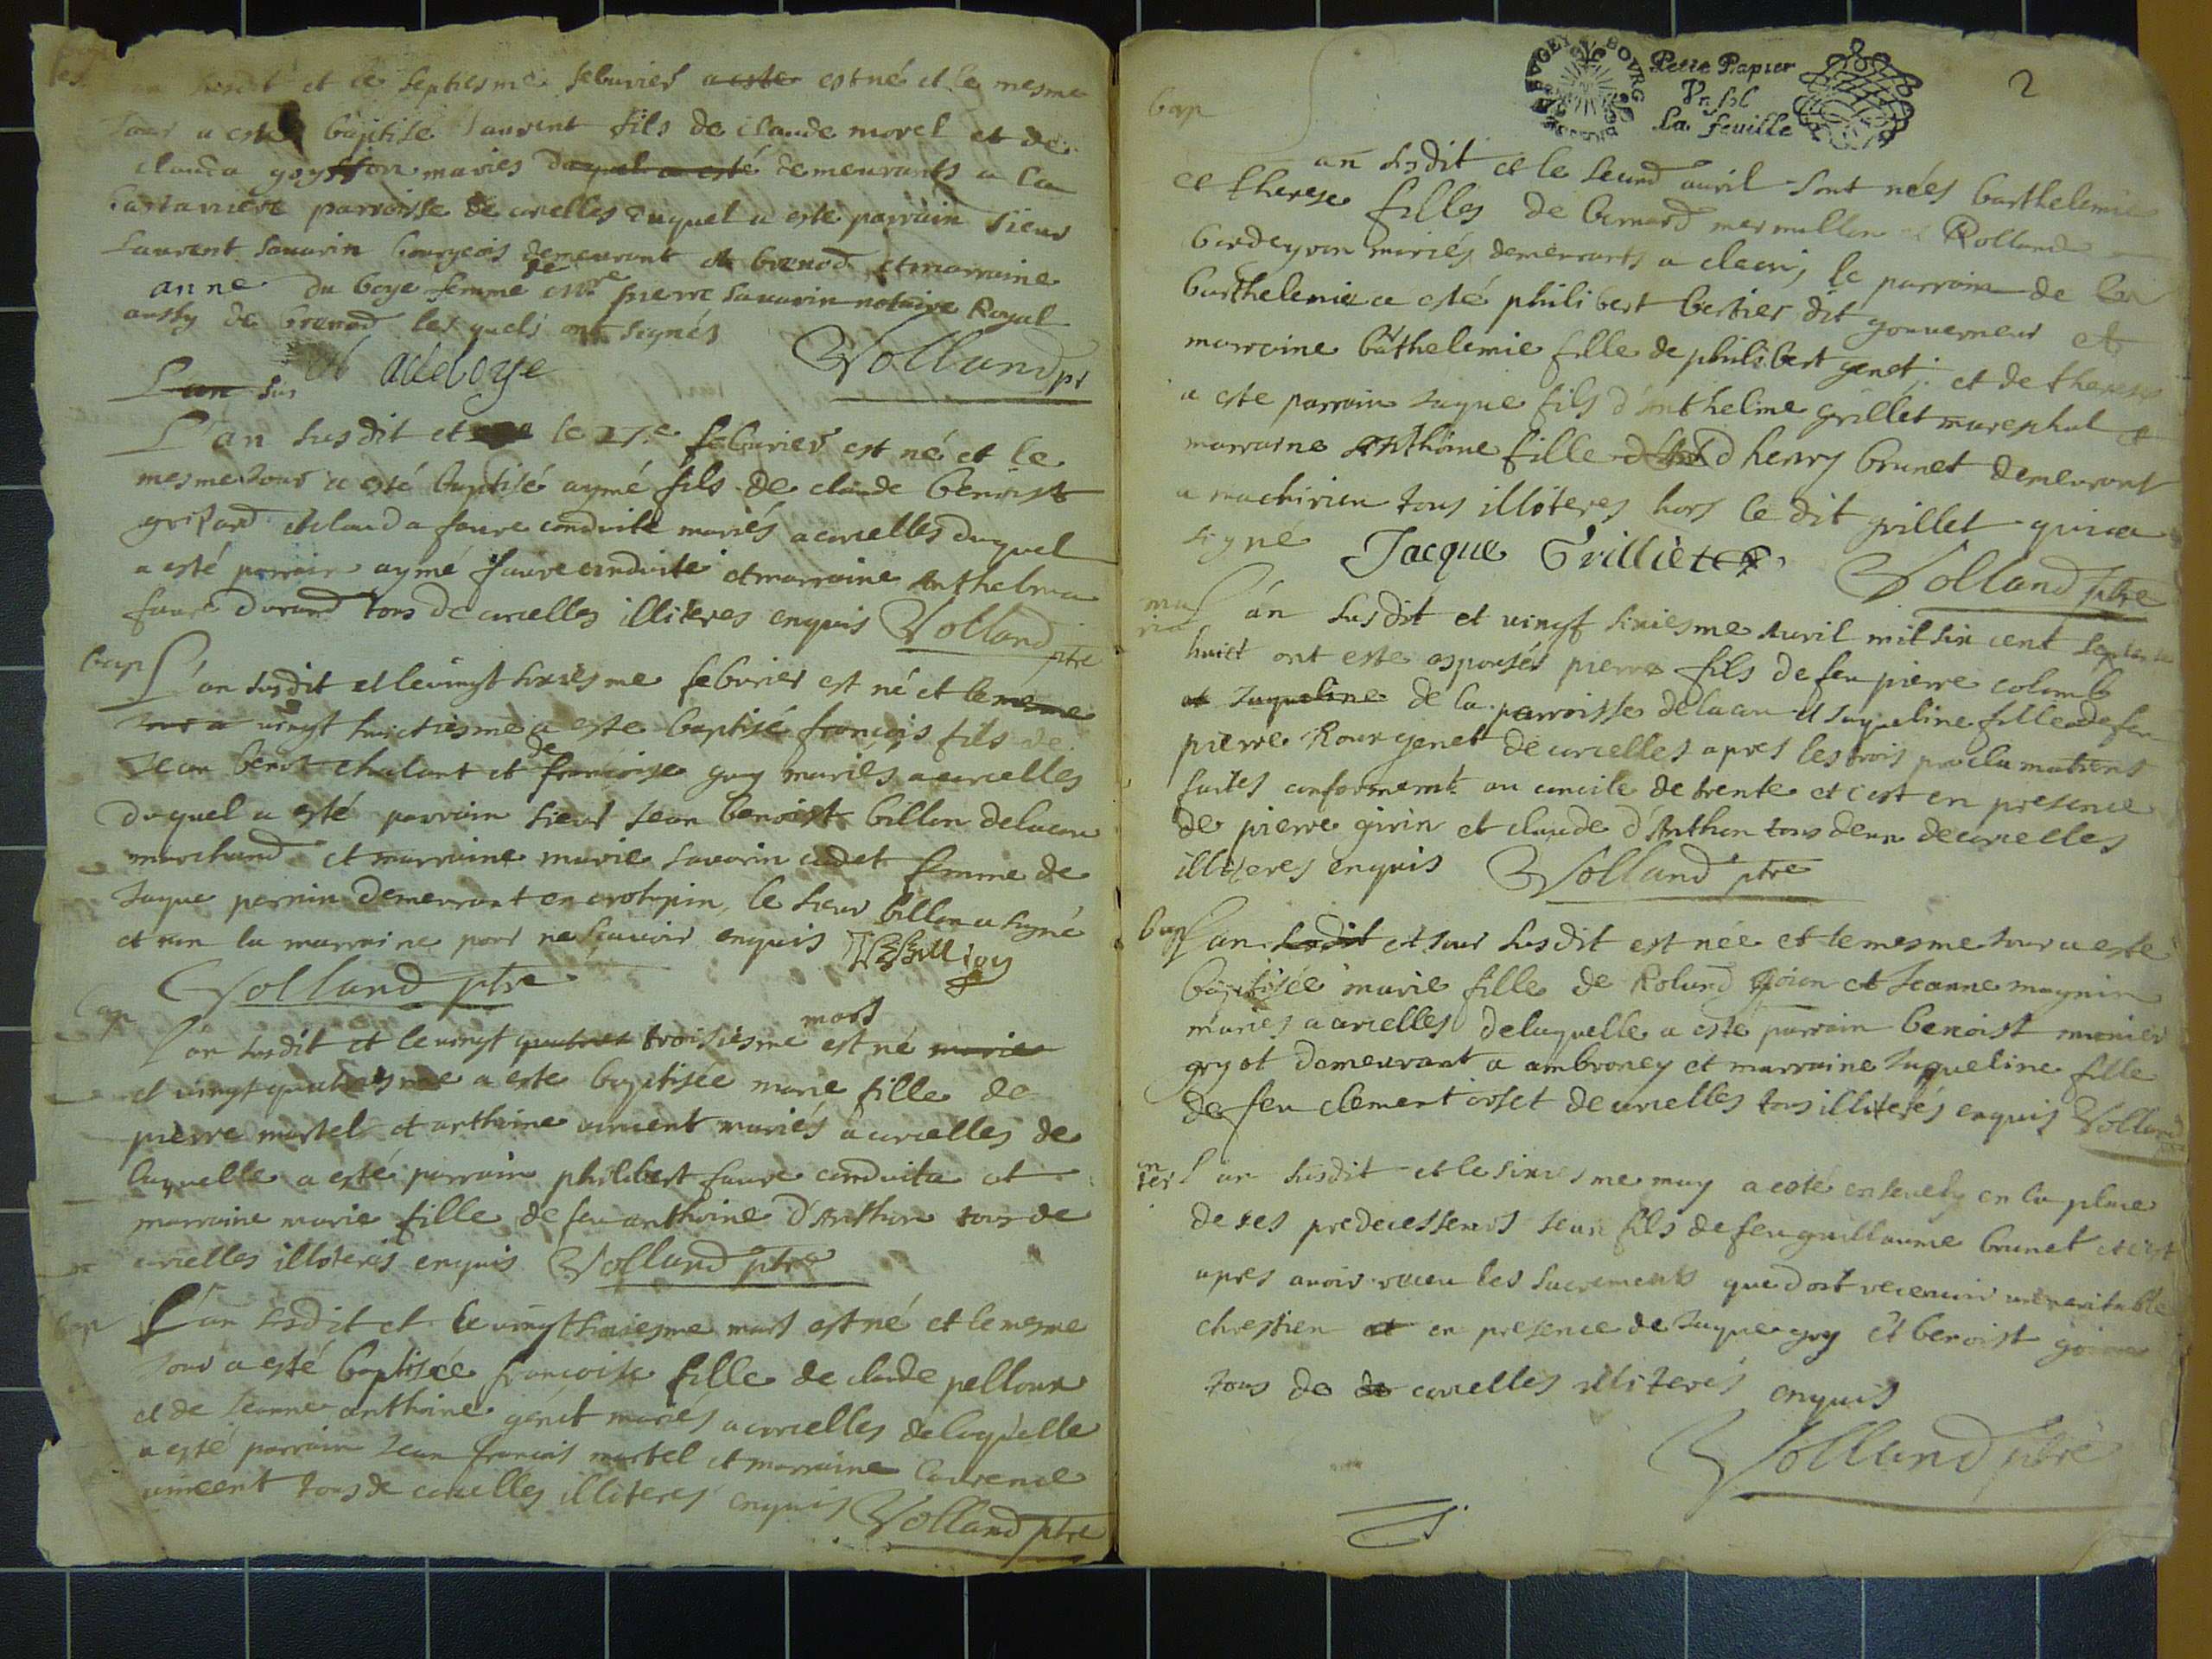 susdit et le septiesme febvrier a este est né et le mesme
Jour a este baptise laurent fils de claude morel et de
clauda goyffon mariés duquel a esté demeurants a la
parroisse de corcelles duquel a este parrain sieur
Laurent Savarin bourgeois demeurant a brenod et marraine
anne du boye femme de Mre pierre Savarin notaire Royal
aussy de brenod lesquels ont signés
adeboye Volland ptr
L'an sus
L'an susdit et le 27e febvrier est né et le
mesme Jour a esté baptisé aymé fils de claude benoist
grisard et clauda faure conduite mariés a corcelles duquel
a esté parrain aymé faure conduite et marraine Anthelma
faure durand tous de corcelles illiteres enquis Volland
ptre
bap L'an susdit et le vingt sixiesme febvrier est né et le meme
Jour a vingt huictiesme a este baptisé françois fils de
Jean benoit chalant et de françoise guy mariés a corcelles
duquel a esté parrain sieur Jean benoist billon de lacou
marchand et marraine marie savarin cadet femme de
Jaque pernin demeurant en crotepin, le sieur billon a signé
et non la marraine pour ne scavoir enquis JBBillion
Volland ptre
bap
L'an susdit et le vingt quatries troisiesme mars est né marie
et vingt quatriesme a este baptisée marie fille de
pierre martel et anthoine vincent mariés a corcelles de
laquelle a esté parrain philibert faure conduita et
marraine marie fille de feu anthoine d'Anthon tous de
corcelles illiteres enquis Volland ptre
bap L'an susdit et le vingt sixiesme mars est né et le mesme
Jour a esté baptisée françoise fille de claude pelloux
et de Jeanne anthoine genet mariés a corcelles de laquelle
a esté parrain Jean francois martel et marraine laurence
vincent tous de corcelles illiteres enquis Volland ptre
BVGEY BOVRG
Petit Papier
Vn sol
La feuille
2
bap
L'an susdit et le second auril sont nées barthelemie
et therese filles de bernard mermillon et Rolland
mariés demeurants a cleoni le parrain de la
barthelemie a esté philibert bertier dit gouverneur et
marraine barthelemie fille de philibert genet et de therese
a este parrain Jaque fils d'Anthelme grillet marephal et
marraine Anthoine fille d henry brunet demeurant
a machirieu tous illiteres hors le dit grillet qui a
signé Jacque Grilliet Volland ptre
ma
ria
L'an susdit et vingt sixiesme Auril mil six cent septente
huict ont este espousés pierre fils de feu pierre colomb
et Jaqueline de la parroisse de lacou et Jaqueline fille de feu
pierre Roux genet de corcelles apres les trois proclamations
faites conformemt au concile de trente et c'est en presence
de pierre girin et claude d'Anthon tous deux de corcelles
illiteres enquis Volland ptre
bap L'an susdit et Jour susdit est née et le mesme Jour a este
baptisée marie fille de Roland goian et Jeanne magnin
mariés a corcelles de laquelle a esté parrain benoist monier
gryot demeurant a ambroney et marraine Jaqueline fille
de feu clement orset de corcelles tous illiterés enquis Volland
en
ter
L'an susdit et le sixiesme may a esté ensevely en la place
de ses predecesseurs Jean fils de feu guillaume brunet et c'est
apres avoir receu les sacrements que doit recevoir un veritable
chrestien et en presence de Jaque guy et benoist
tous de de corcelles illiterés enquis
Volland ptre